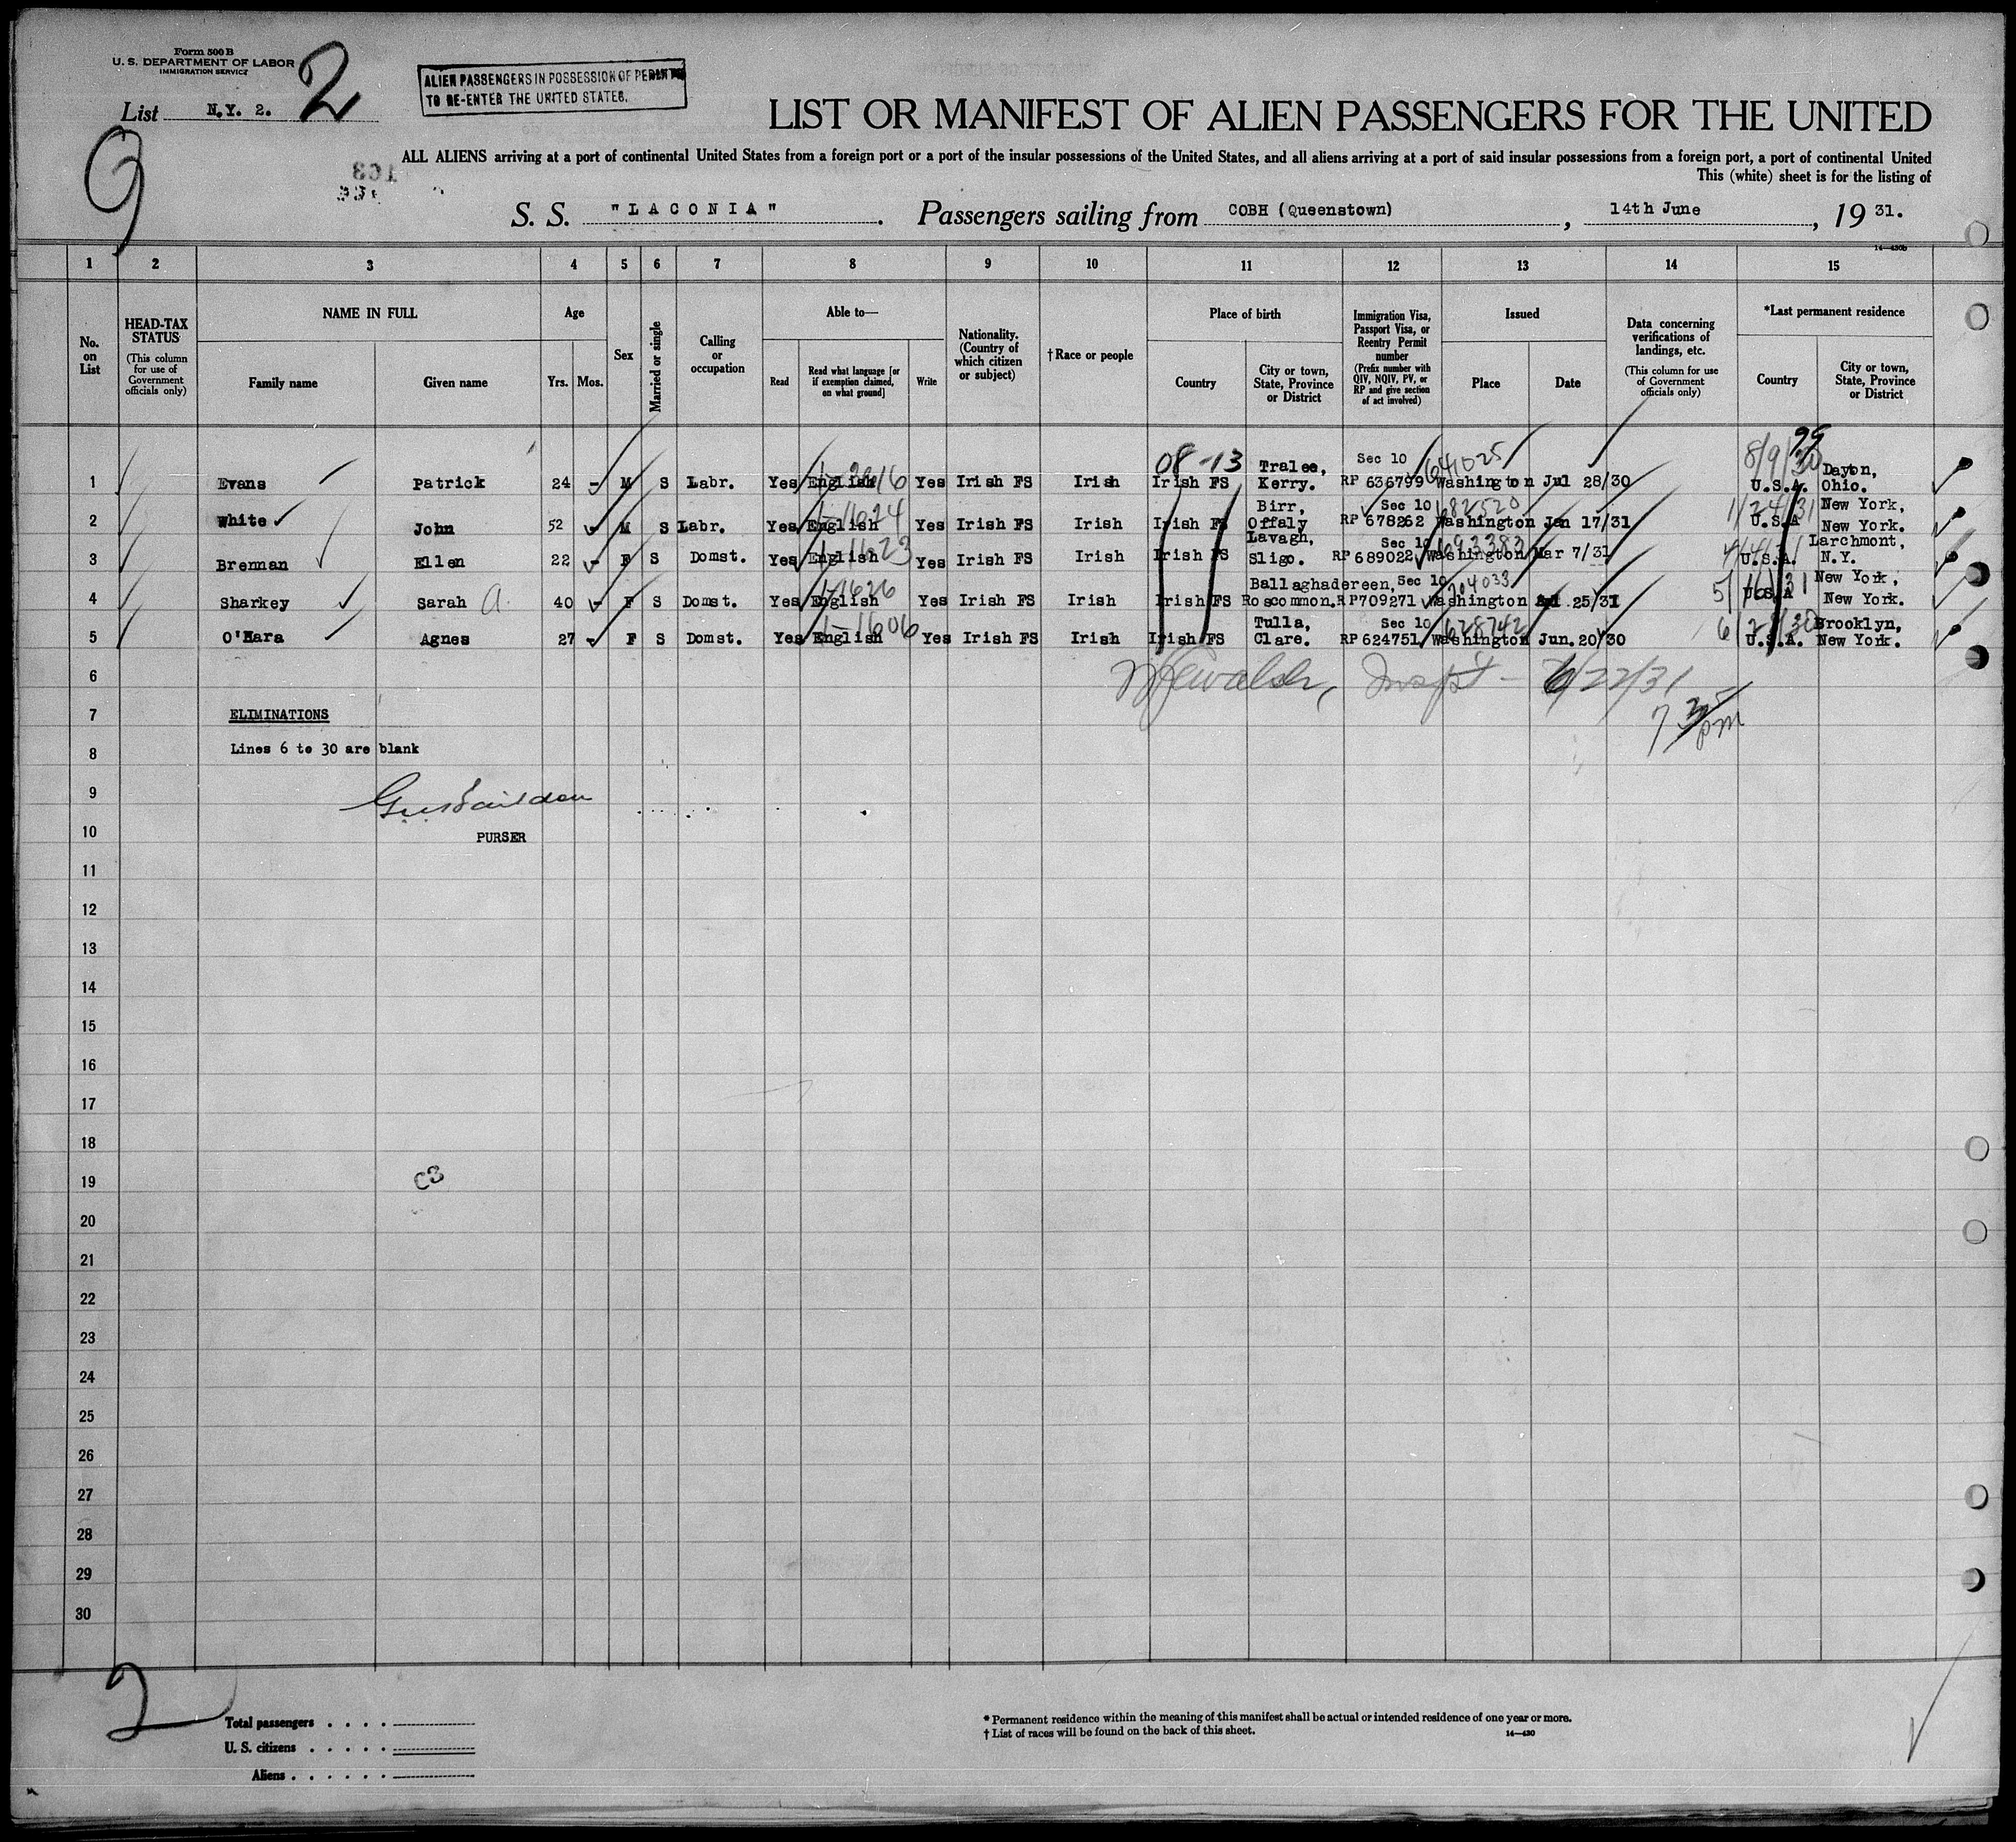 Form 500 B
U. S. DEPARTMENT OF LABOR
IMMIGRATION SERVICE
2
List N.Y. 2.
ALIEN PASSENGERS IN POSSESSION OF PERMIT
TO RE-ENTER THE UNITED STATES.
9
163
LIST OR MANIFEST OF ALIEN PASSENGERS FOR THE UNITED
ALL ALIENS arriving at a port of continental United States from a foreign port or a port of the insular possessions of the United States, and all aliens arriving at a port of said insular possessions from a foreign port, a port of continental United
This (white) sheet is for the listing of
S. S. "LACONIA". Passengers sailing from COBH (Queenstown), 14th June, 19 31.
14—430b
1 2 3 4 5 6 7 8 9 10 11 12 13 14 15
No. on List
HEAD-TAX STATUS
(This column for use of Government officials only)
NAME IN FULL
Family name Given name
Age
Yrs. Mos.
Sex
Married or single
Calling or occupation
Able to—
Read Read what language [or if exemption claimed, on what ground] Write
Nationality. (Country of which citizen or subject)
† Race or people
Place of birth
Country City or town, State, Province or District
Immigration Visa, Passport Visa, or Reentry Permit number
(Prefix number with QIV, NQIV, PV, or RP and give section of act involved)
Issued
Place Date
Data concerning verifications of landings, etc.
(This column for use of Government officials only)
*Last permanent residence
Country City or town, State, Province or District
99
08-13 Tralee, Sec 10 641025 8/9/30 Dayton,
1 Evans Patrick 24 - M S Labr. Yes English Yes Irish FS Irish Irish FS Kerry. RP 636799 Washington Jul 28/30 U.S.A. Ohio.
1-11624 Birr, Sec 10 682520 1/24/31 New York,
2 White John 52 M S Labr. Yes English Yes Irish FS Irish Irish FS Offaly RP 678262 Washington Jan 17/31 U.S.A New York.
1-11623 Lavagh, Sec 10 693383 Larchmont,
3 Brennan Ellen 22 - F S Domst. Yes English Yes Irish FS Irish Irish FS Sligo. RP 689022 Washington Mar 7/31 U.S.A. N.Y.
1-1626 Ballaghadereen, Sec 10 704033 5/16/31 New York,
4 Sharkey Sarah A. 40 - F S Domst. Yes English Yes Irish FS Irish Irish FS Roscommon. RP709271 Washington 25/31 U.S.A New York.
1-1606 Tulla, Sec 10 628742 Brooklyn,
5 O'Hara Agnes 27 - F S Domst. Yes English Yes Irish FS Irish Irish FS Clare. RP 624751 Washington Jun. 20/30 U.S.A. New York.
6 Walsh, Inspt - 6/22/31
7 ELIMINATIONS 7 pm
8 Lines 6 to 30 are blank
9
10 PURSER
11
12
13
14
15
16
17
18
19 C3
20
21
22
23
24
25
26
27
28
29
30
2
Total passengers . . . .
U. S. citizens . . . . .
Aliens . . . . . .
* Permanent residence within the meaning of this manifest shall be actual or intended residence of one year or more.
† List of races will be found on the back of this sheet. 14—430